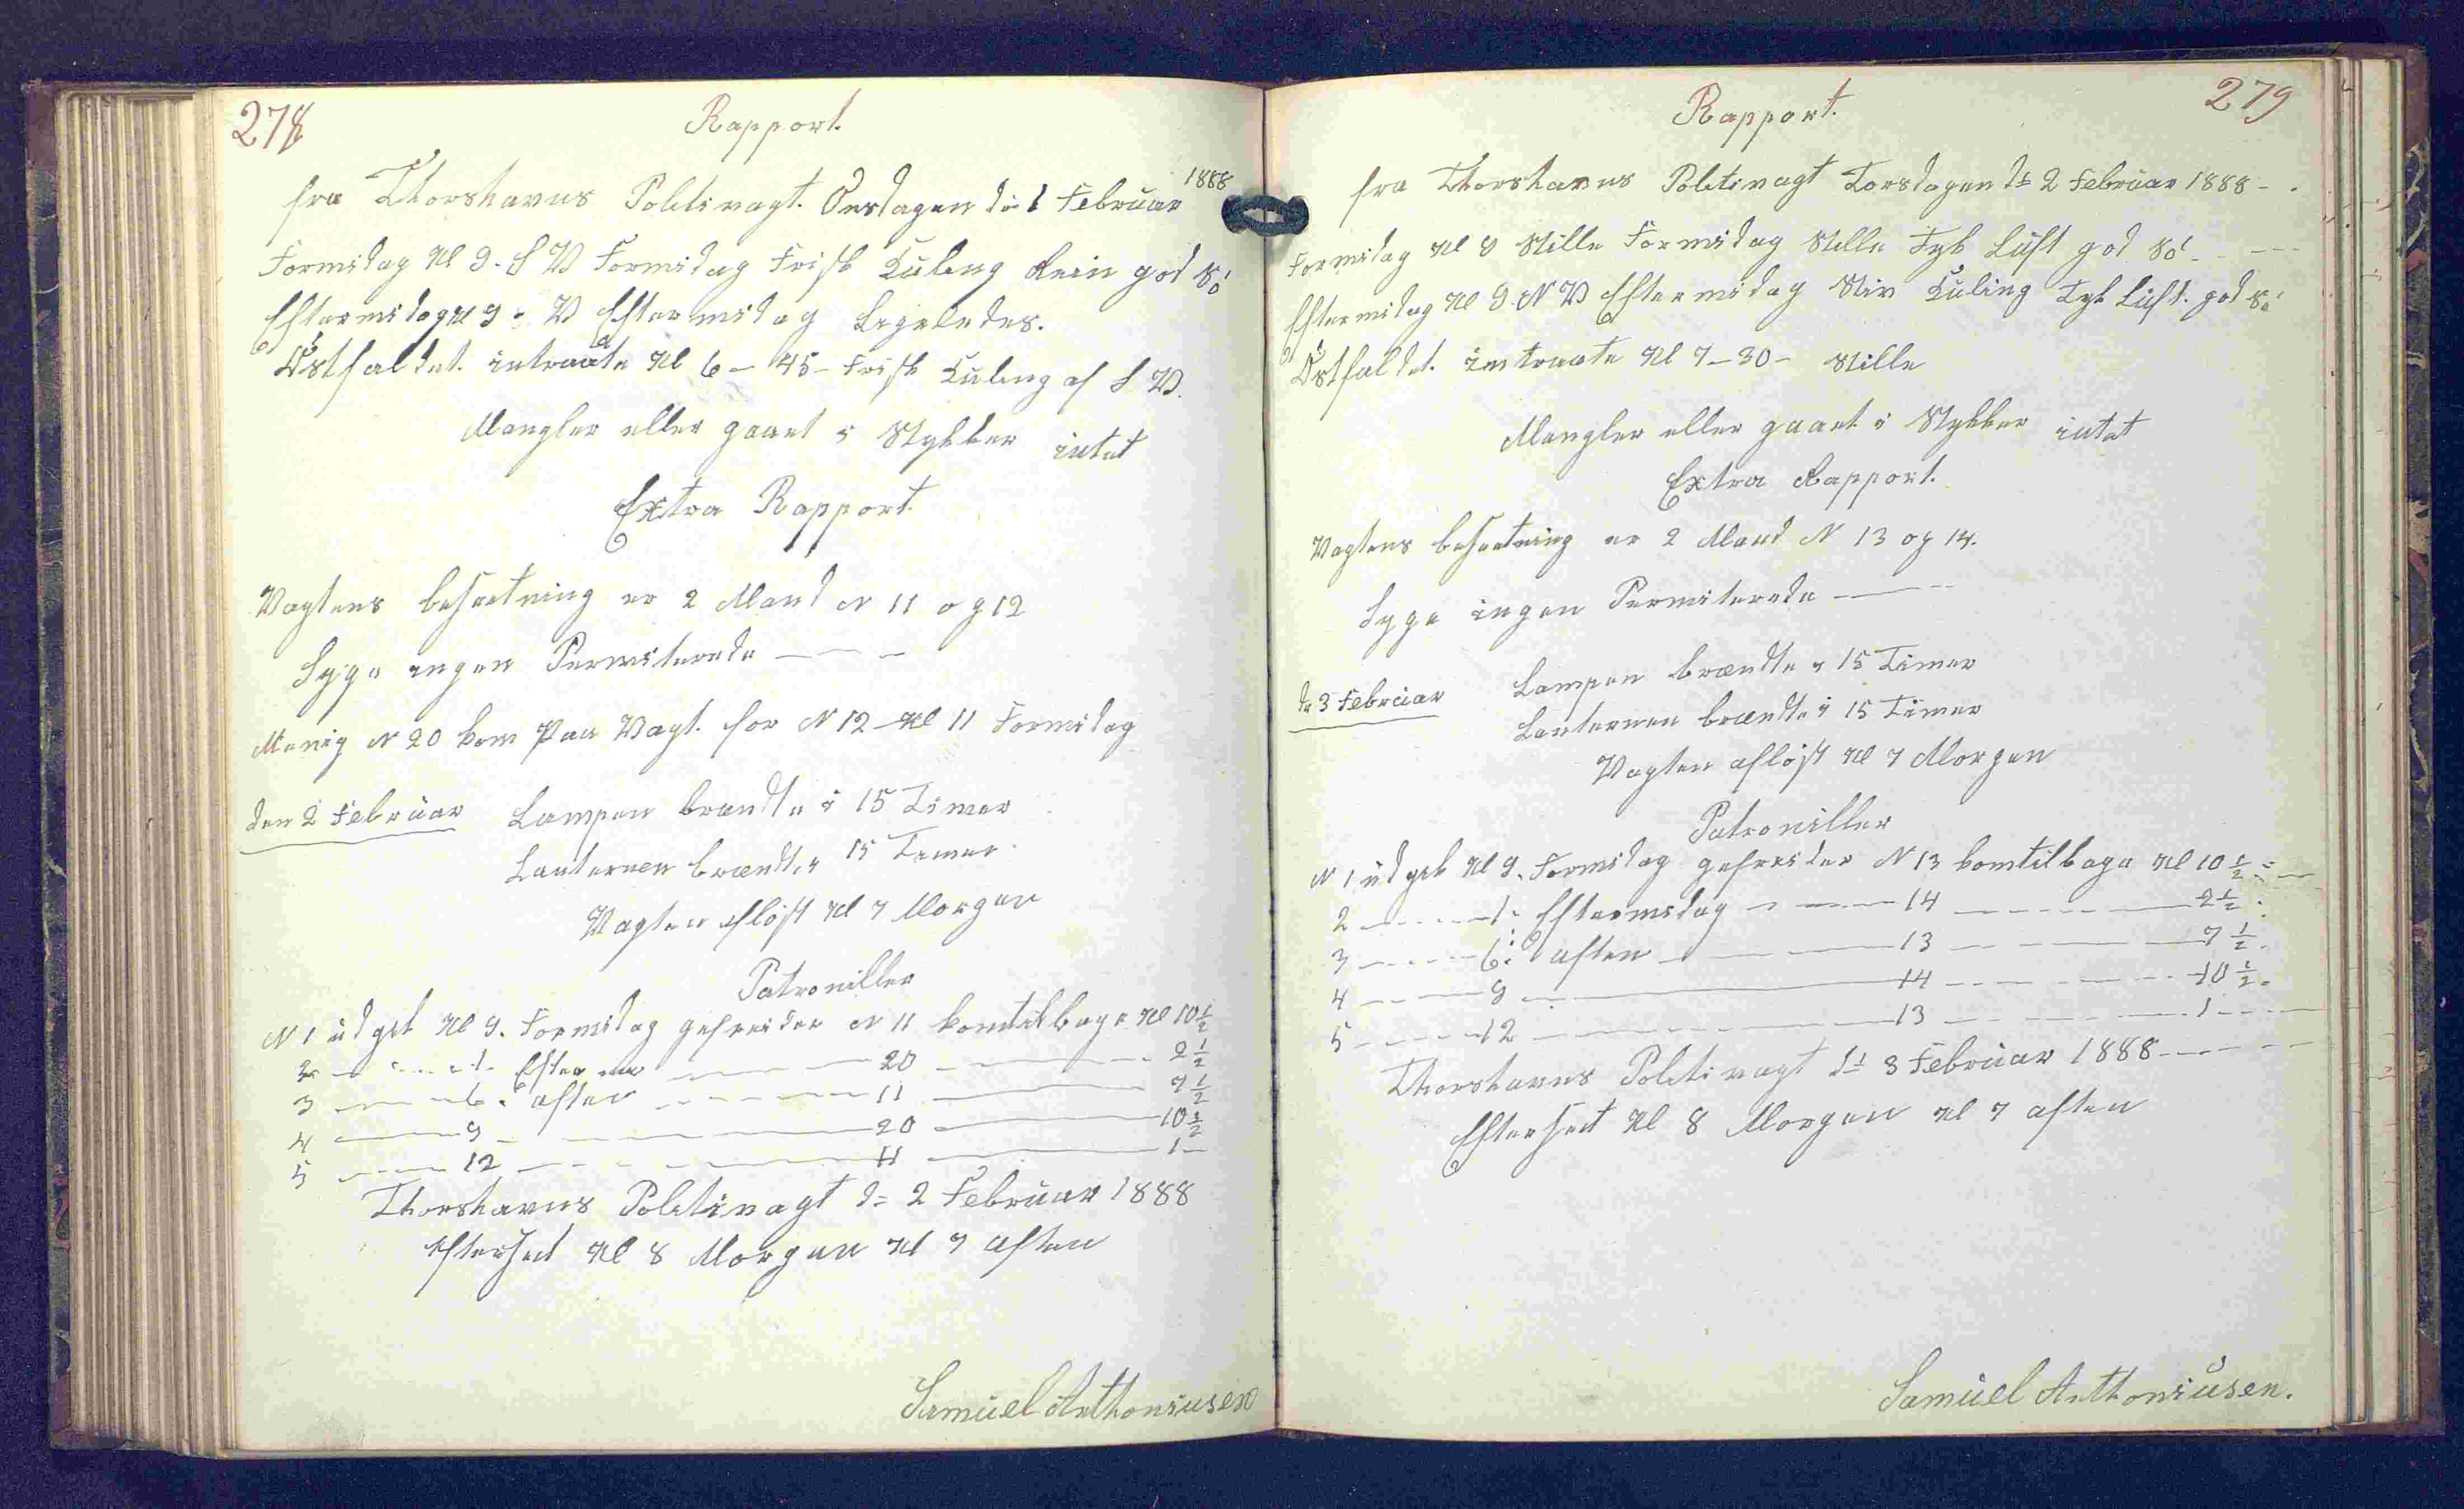 278
Rapport.
1888
fra Thorshavns Politivagt. Onsdagen d: 1 Februar
Formidag Kl 9. S V Formidag Frisk Kuling Rein god Sö
Eftermidag Kl 9 - V Eftermidag Ligeledes.
Östfaldet. intraate Kl 6 - 45 - Frisk Kuling af S V.
Mangler eller gaaet i Stykker intet
Extra Rapport.
Vagtens besætning er 2 Mand N 11 og 12
Syge ingen Permiterede - - -
Menig N 20 kom Paa Vagt. for N 12 - Kl 11 Formidag
den 2 Februar Lampen brændte i 15 Timer
Lanternen brændte i 15 Timer
Vagten afløst Kl 7 Morgen
Patroniller
N 1 udgik Kl 9. Formidag gefreider N 11 komtilbage Kl 10 1/2
2 - - 1 - Efterm - 20 - - 2 1/2
3 - - 6 : aften - - 11 - 7 1/2
4 - 9 - - 20 - 10 1/2
5 - - 12 - - 11 - 1 -
Thorshavns Politivagt d= 2 Februar 1888
Efterset Kl 8 Morgen Kl 7 aften
Samuel Anthoniusen
279
Rapport.
fra Thorshavns Politivagt Torsdagen d= 2 Februar 1888 - .
Formidag Kl 9 Stille Formidag Stille Tyk Luft god Sö - - -
Eftermidag Kl 9. N V Eftermidag Stiv Kuling Tyk Luft. god Sö
Östfaldet. intraate Kl 7 - 30 - Stille
Mangler eller gaaet i Stykker intet
Extra Rapport.
Vagtens besætning er 2 Mand N 13 og 14.
Syge ingen Permiterede - - -
d= 3 Februar Lampen brændte i 15 Timer
Lanternen brændte i 15 Timer
Vagten afløst Kl 7 Morgen
Patroniller
N 1 udgik Kl 9. Formidag gefreider N 13 komtilbage Kl 10 1/2 = -
2 - - 1 - Eftermidag - - 14 - - 2 1/2 .
3 - - 6 : aften - - 13 - - 7 1/2 .
4 - - 9 - 14 - - 10 1/2 .
5 - - 12 - - 13 - - 1 - -
Thorshavns Politivagt d= 3 Februar 1888 - - -
Efterset Kl 8 Morgen Kl 7 aften
Samuel Anthoniusen.